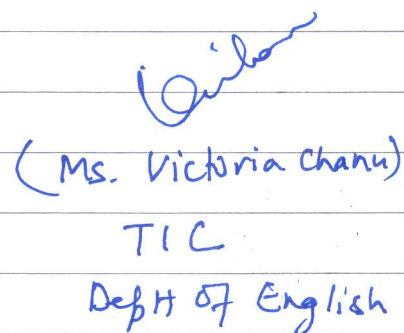 (Ms. Victoria Chanu)
TIC
Deptt of English